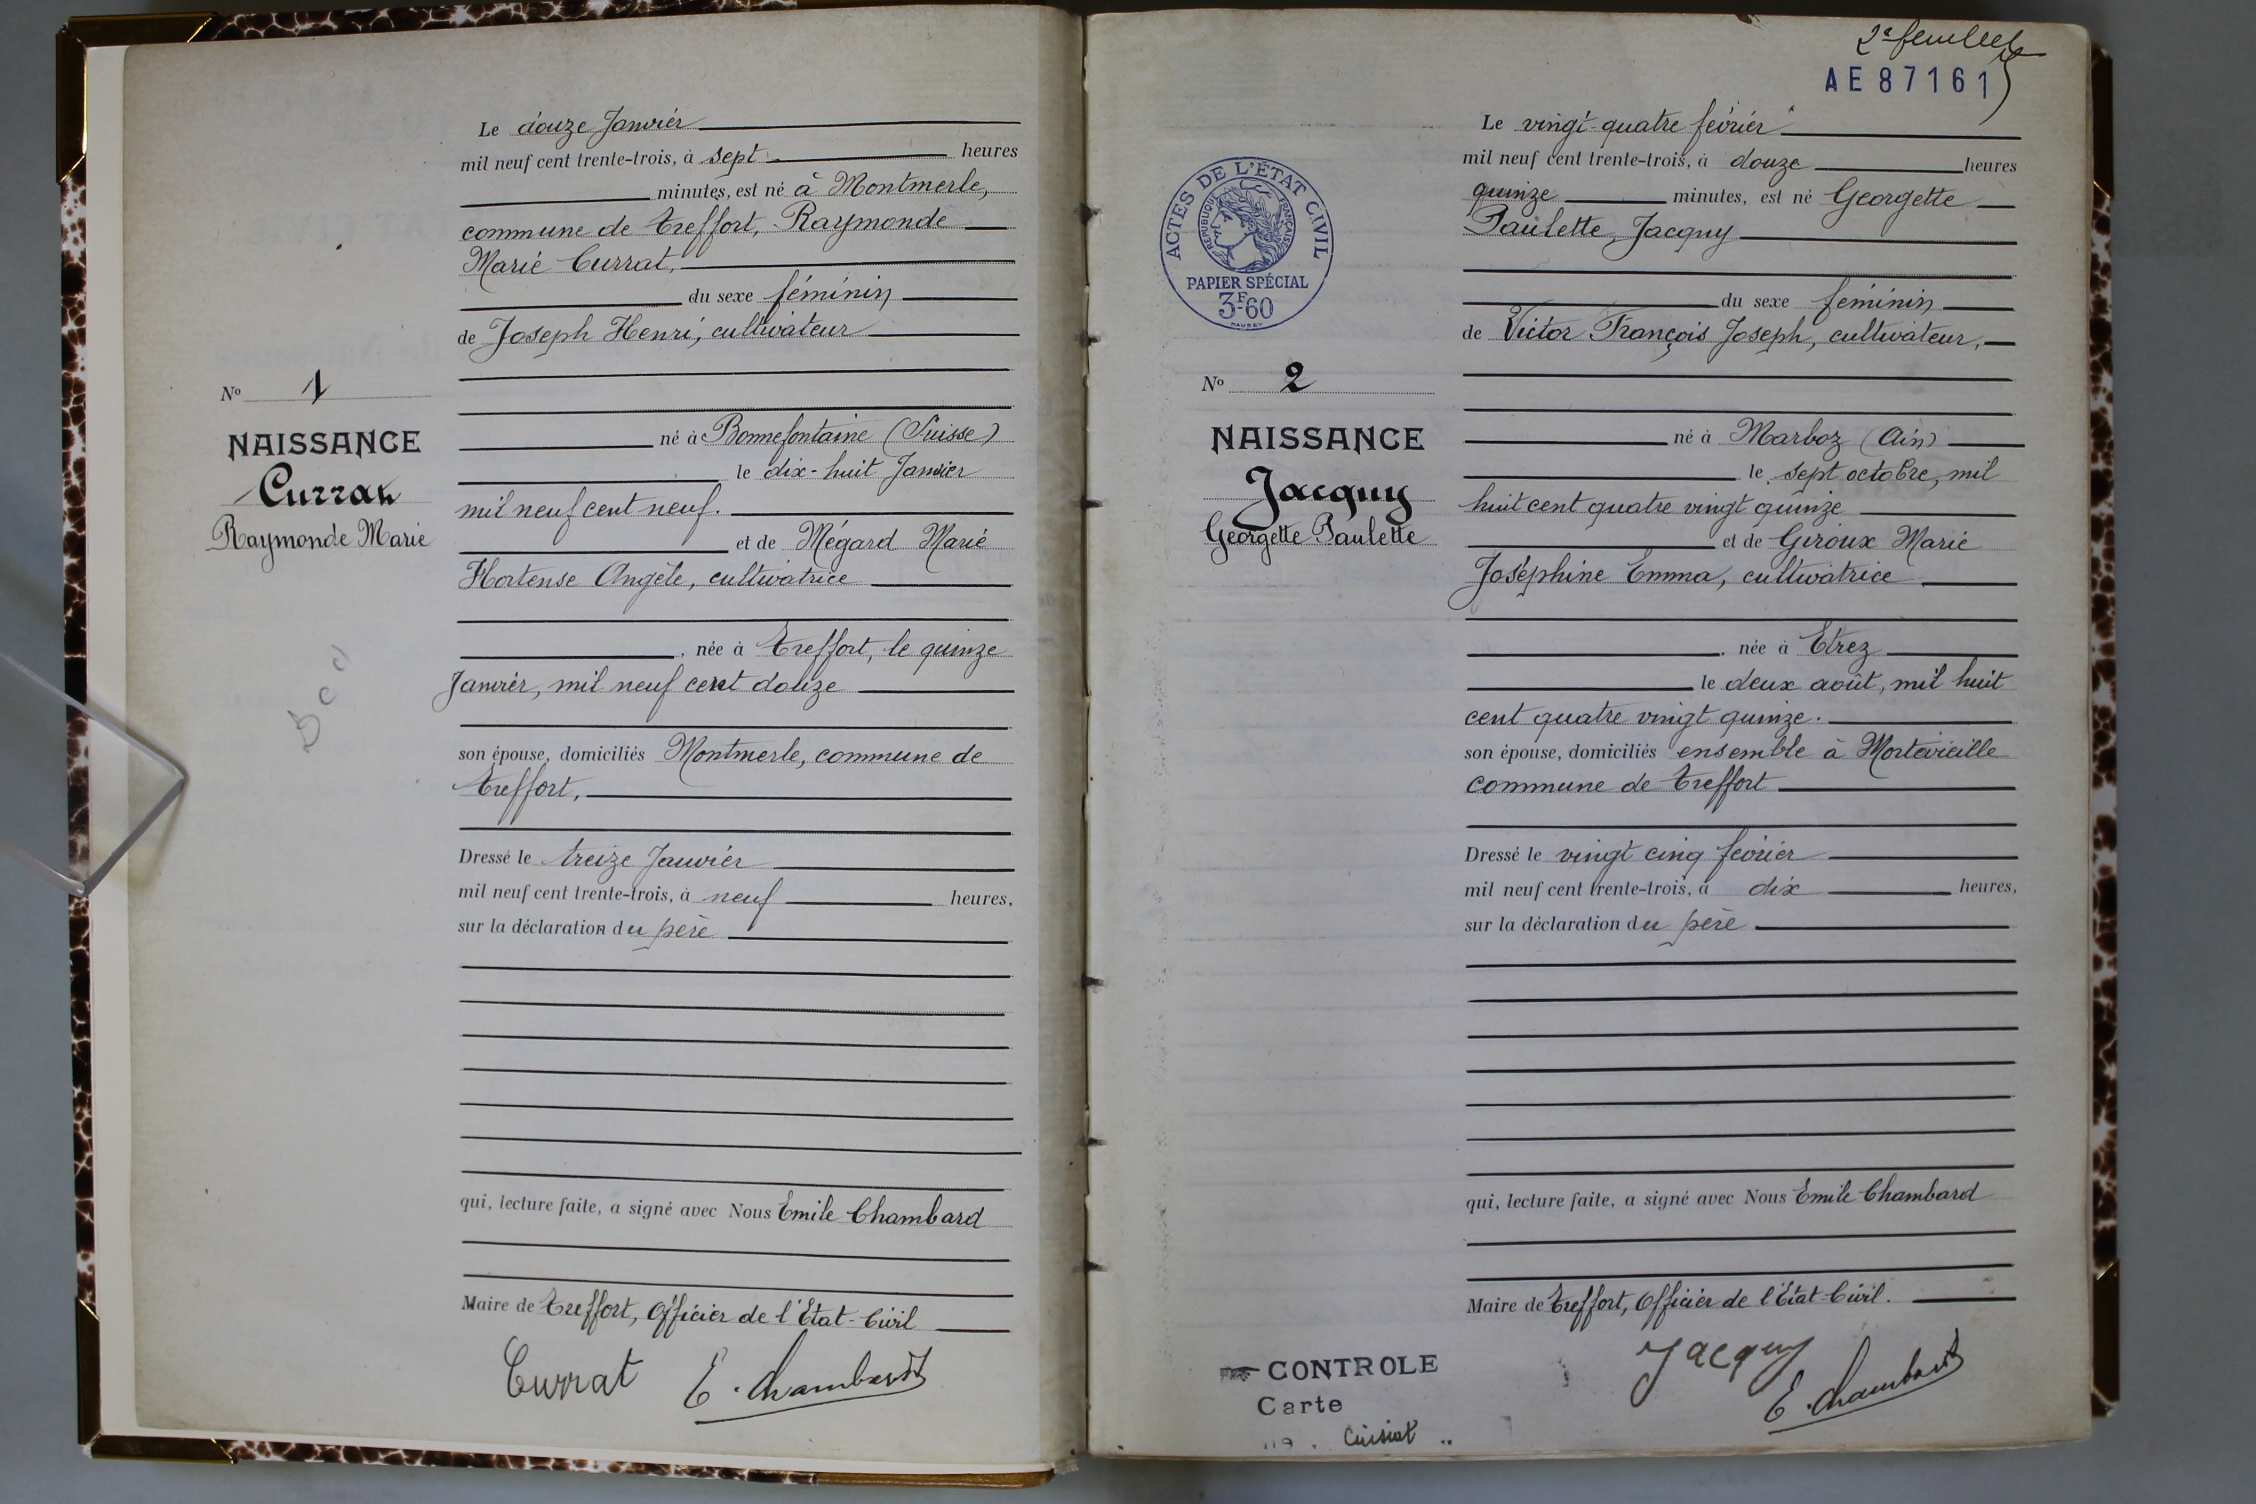 Le douze Janvier
mil neuf cent trente-trois, à sept heures
minutes, est né à Montmerle,
commune de Treffort, Raymonde
Marie Currat,
du sexe féminin
de Joseph Henri, cultivateur
No 1
NAISSANCE
Currat
Raymonde Marie
né à Bonnefontaine (Suisse)
le dix-huit Janvier
mil neuf cent neuf.
et de Mégard Marie
Hortense Angèle, cultivatrice
née à Treffort, le quinze
Janvier, mil neuf cent douze
son épouse, domiciliés Montmerle, commune de
Treffort,
Dressé le treize Janvier
mil neuf cent trente-trois, à neuf heures,
sur la déclaration du père
qui, lecture faite, a signé avec Nous Emile Chambard
Maire de Treffort, Officier de l'Etat-Civil
Currat E. Chambard
2e feuillet
AE 87161
ACTES DE L'ÉTAT CIVIL
RÉPUBLIQUE FRANÇAISE
PAPIER SPÉCIAL
3F60
Le vingt-quatre février
mil neuf cent trente-trois, à douze heures
quinze minutes, est né Georgette
Paulette Jacquy
du sexe féminin
de Victor François Joseph, cultivateur,
No 2
NAISSANCE
Jacquy
Georgette Paulette
né à Marboz (Ain)
le sept octobre, mil
huit cent quatre vingt quinze
et de Giroux Marie
Joséphine Emma, cultivatrice
née à Etrez
le deux août, mil huit
cent quatre vingt quinze.
son épouse, domiciliés ensemble à Mortevieille
commune de Treffort
Dressé le vingt cinq février
mil neuf cent trente-trois, à dix heures,
sur la déclaration du père
qui, lecture faite, a signé avec Nous Emile Chambard
Maire de Treffort, Officier de l'Etat-Civil.
Jacquy
E. Chambard
CONTROLE
Carte
Cuisiat